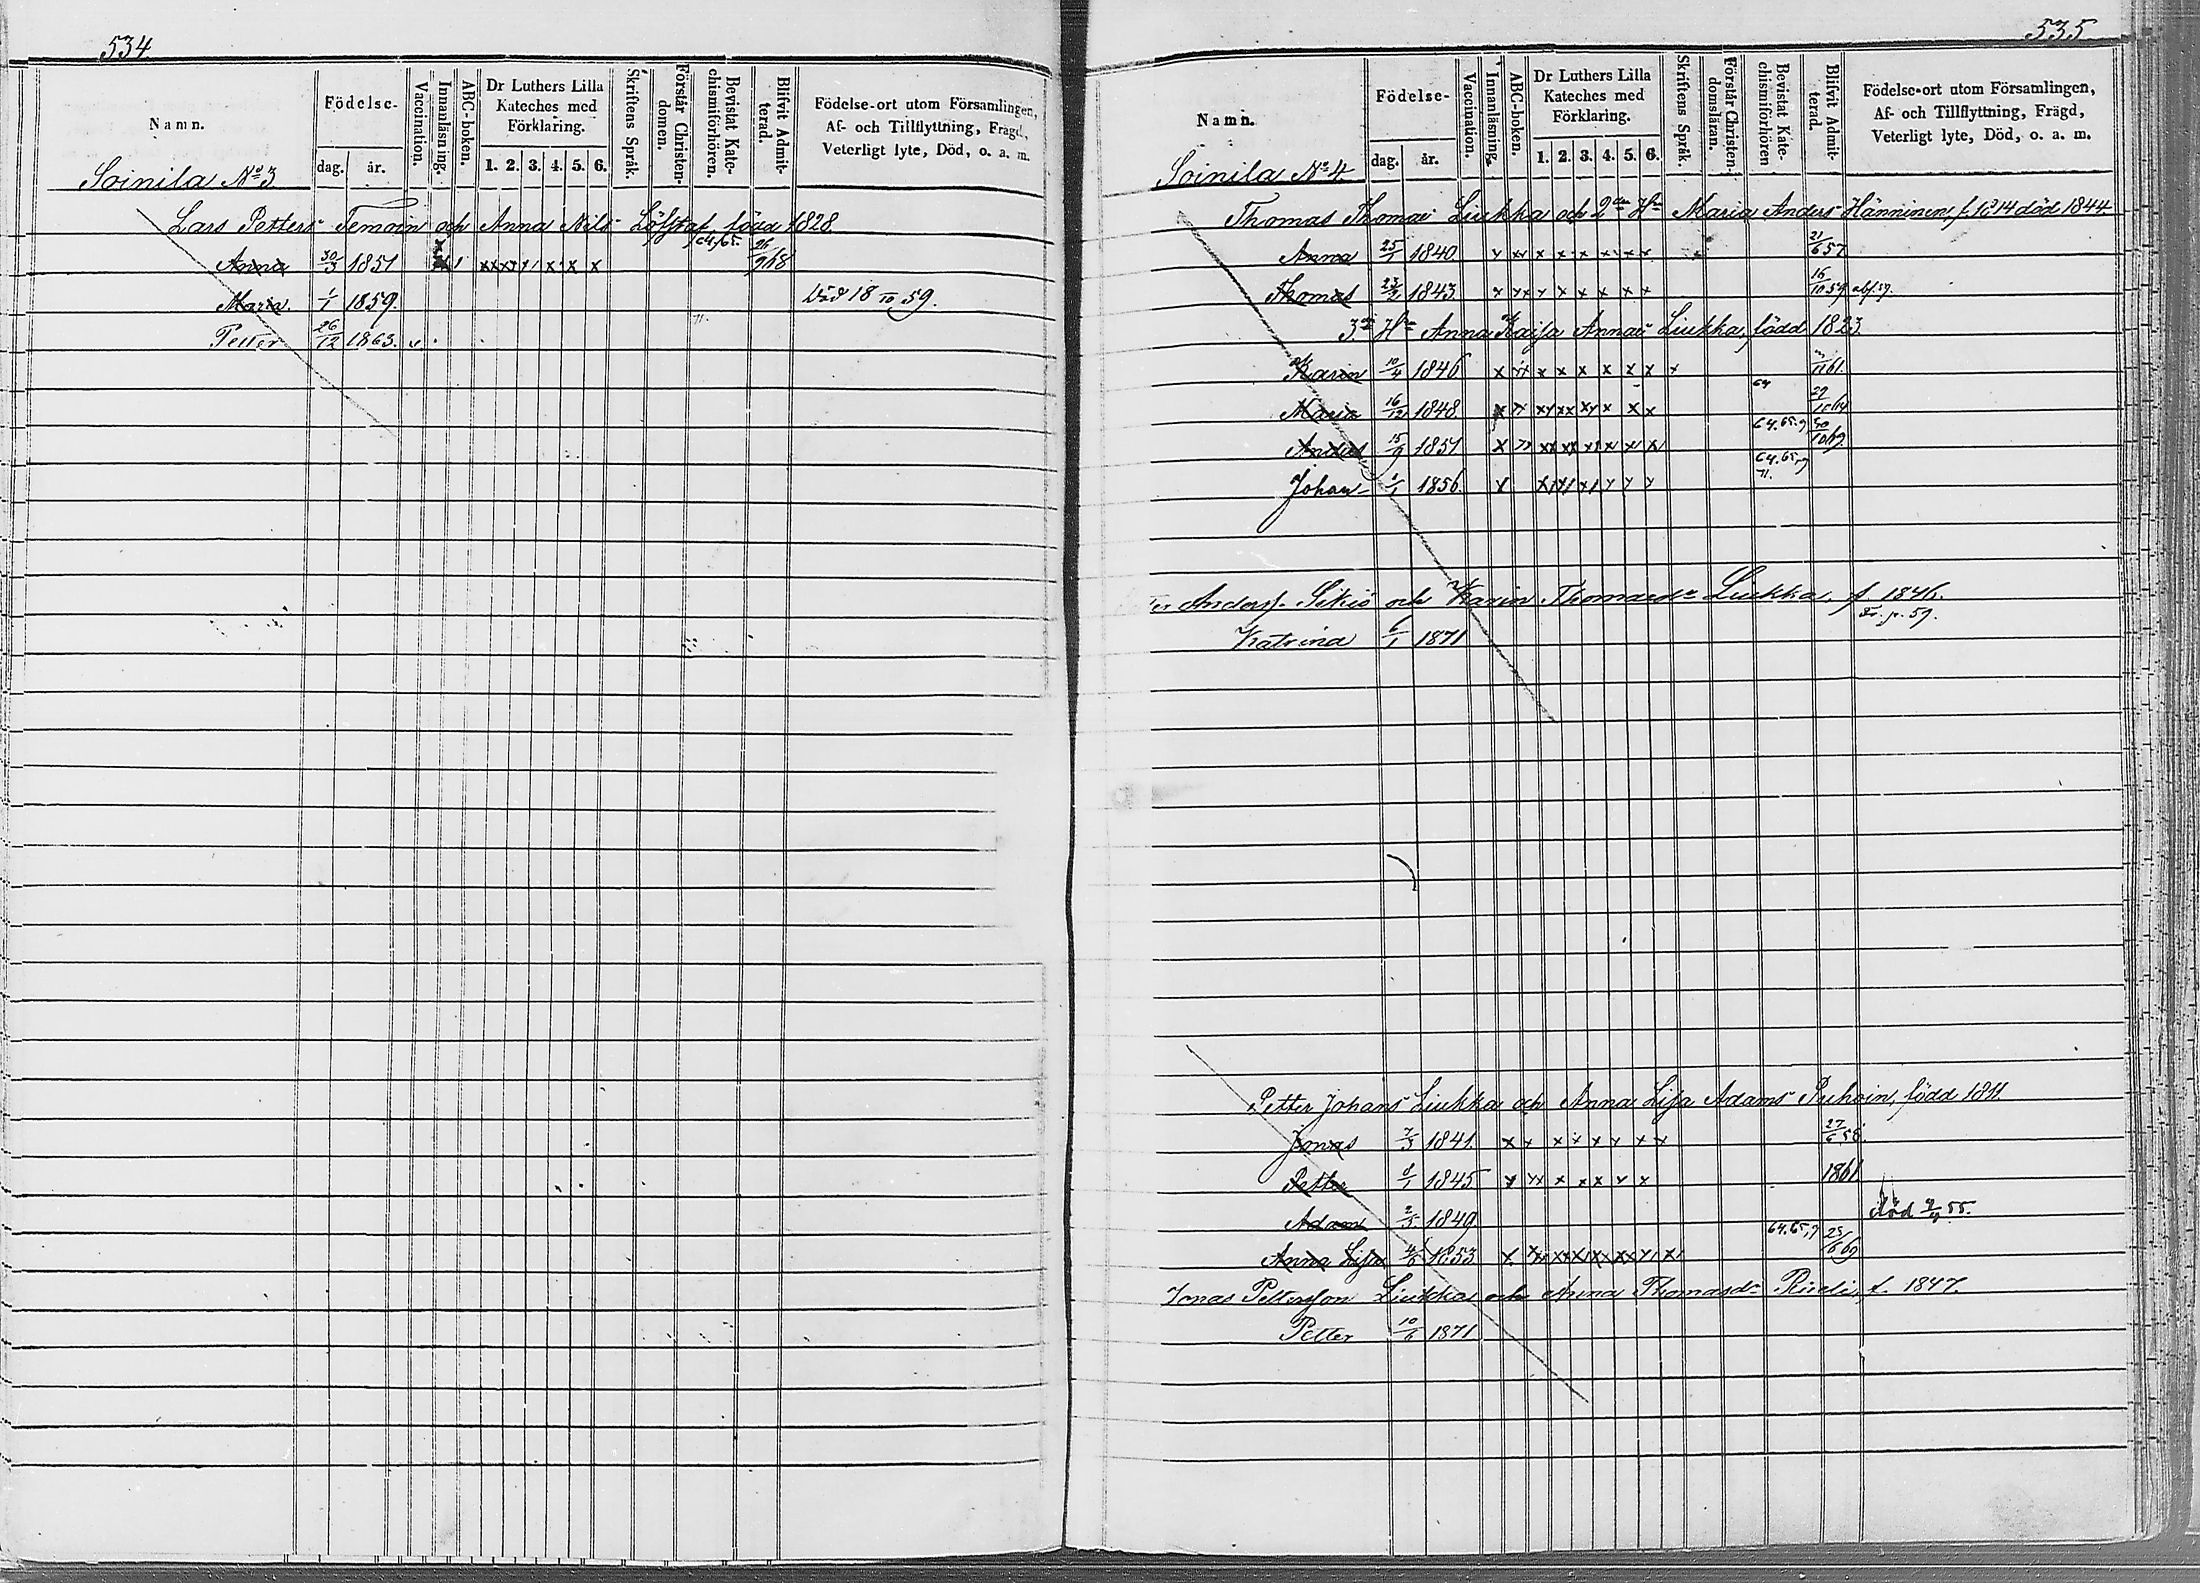 534.
Namn. Födelse- dag. år. Vaccination. Innanläsning. ABC-boken. Dr Luthers Lilla Kateches med Förklaring. 1. 2. 3. 4. 5. 6. Skriftens Språk. Förstår Christendomen. Bevistat Katechismiförhören. Blifvit Admitterad. Födelse-ort utom Församlingen, Af- och Tillflyttning, Frägd, Veterligt lyte, Död, o. a. m.
Soinila No 3
Lars Petters Temoin och Anna Nils Löfstat, född 1828.
Anna 30/3 1851 64,65. 26/9 68
Maria. 1/1 1859. Död 18/10 59.
Petter 26/12 1863.
535
Namn. Födelse- dag. år. Vaccination. Innanläsning. ABC-boken. Dr Luthers Lilla Kateches med Förklaring. 1. 2. 3. 4. 5. 6. Skriftens Språk. Förstår Christendomsläran. Bevistat Katechismiförhören Blifvit Admitterad. Födelse-ort utom Församlingen, Af- och Tillflyttning, Frägd, Veterligt lyte, Död, o. a. m.
Soinila No 4.
Thomas Thomas Liukka och 2dra Hu Maria Anders Hänninen, f. 1814 död 1844.
Anna 25/1 1840. 21/6 57
Thomas 23/2 1843. 16/10 59
3. Hu Anna Kaisa Annas Liukka, född 1823.
Karin 10/4 1846 61.
Maria 16/12 1848. 64
Anders 15/9 1851 64.65.9 30/10 69
Johan 1/1 1856. 64.65,9 71.
Anders. Sikiö och Karin Thomasdr Liukka, f. 1846.
p. 59.
Katrina 6/1 1871
Petter Johans Liukka och Anna Lisa Adams Puhoin, född 1811.
Jonas 7/3 1841. 27/6 58.
Petter 1/1 1845 1861.
Adam 2/5 1849 död 55.
Anna Lisa 4/6 1853 64.65,9 25/6 69
Jonas Pettersson Liukka och Anna Thomasdr f. 1847.
Petter 10/6 1871